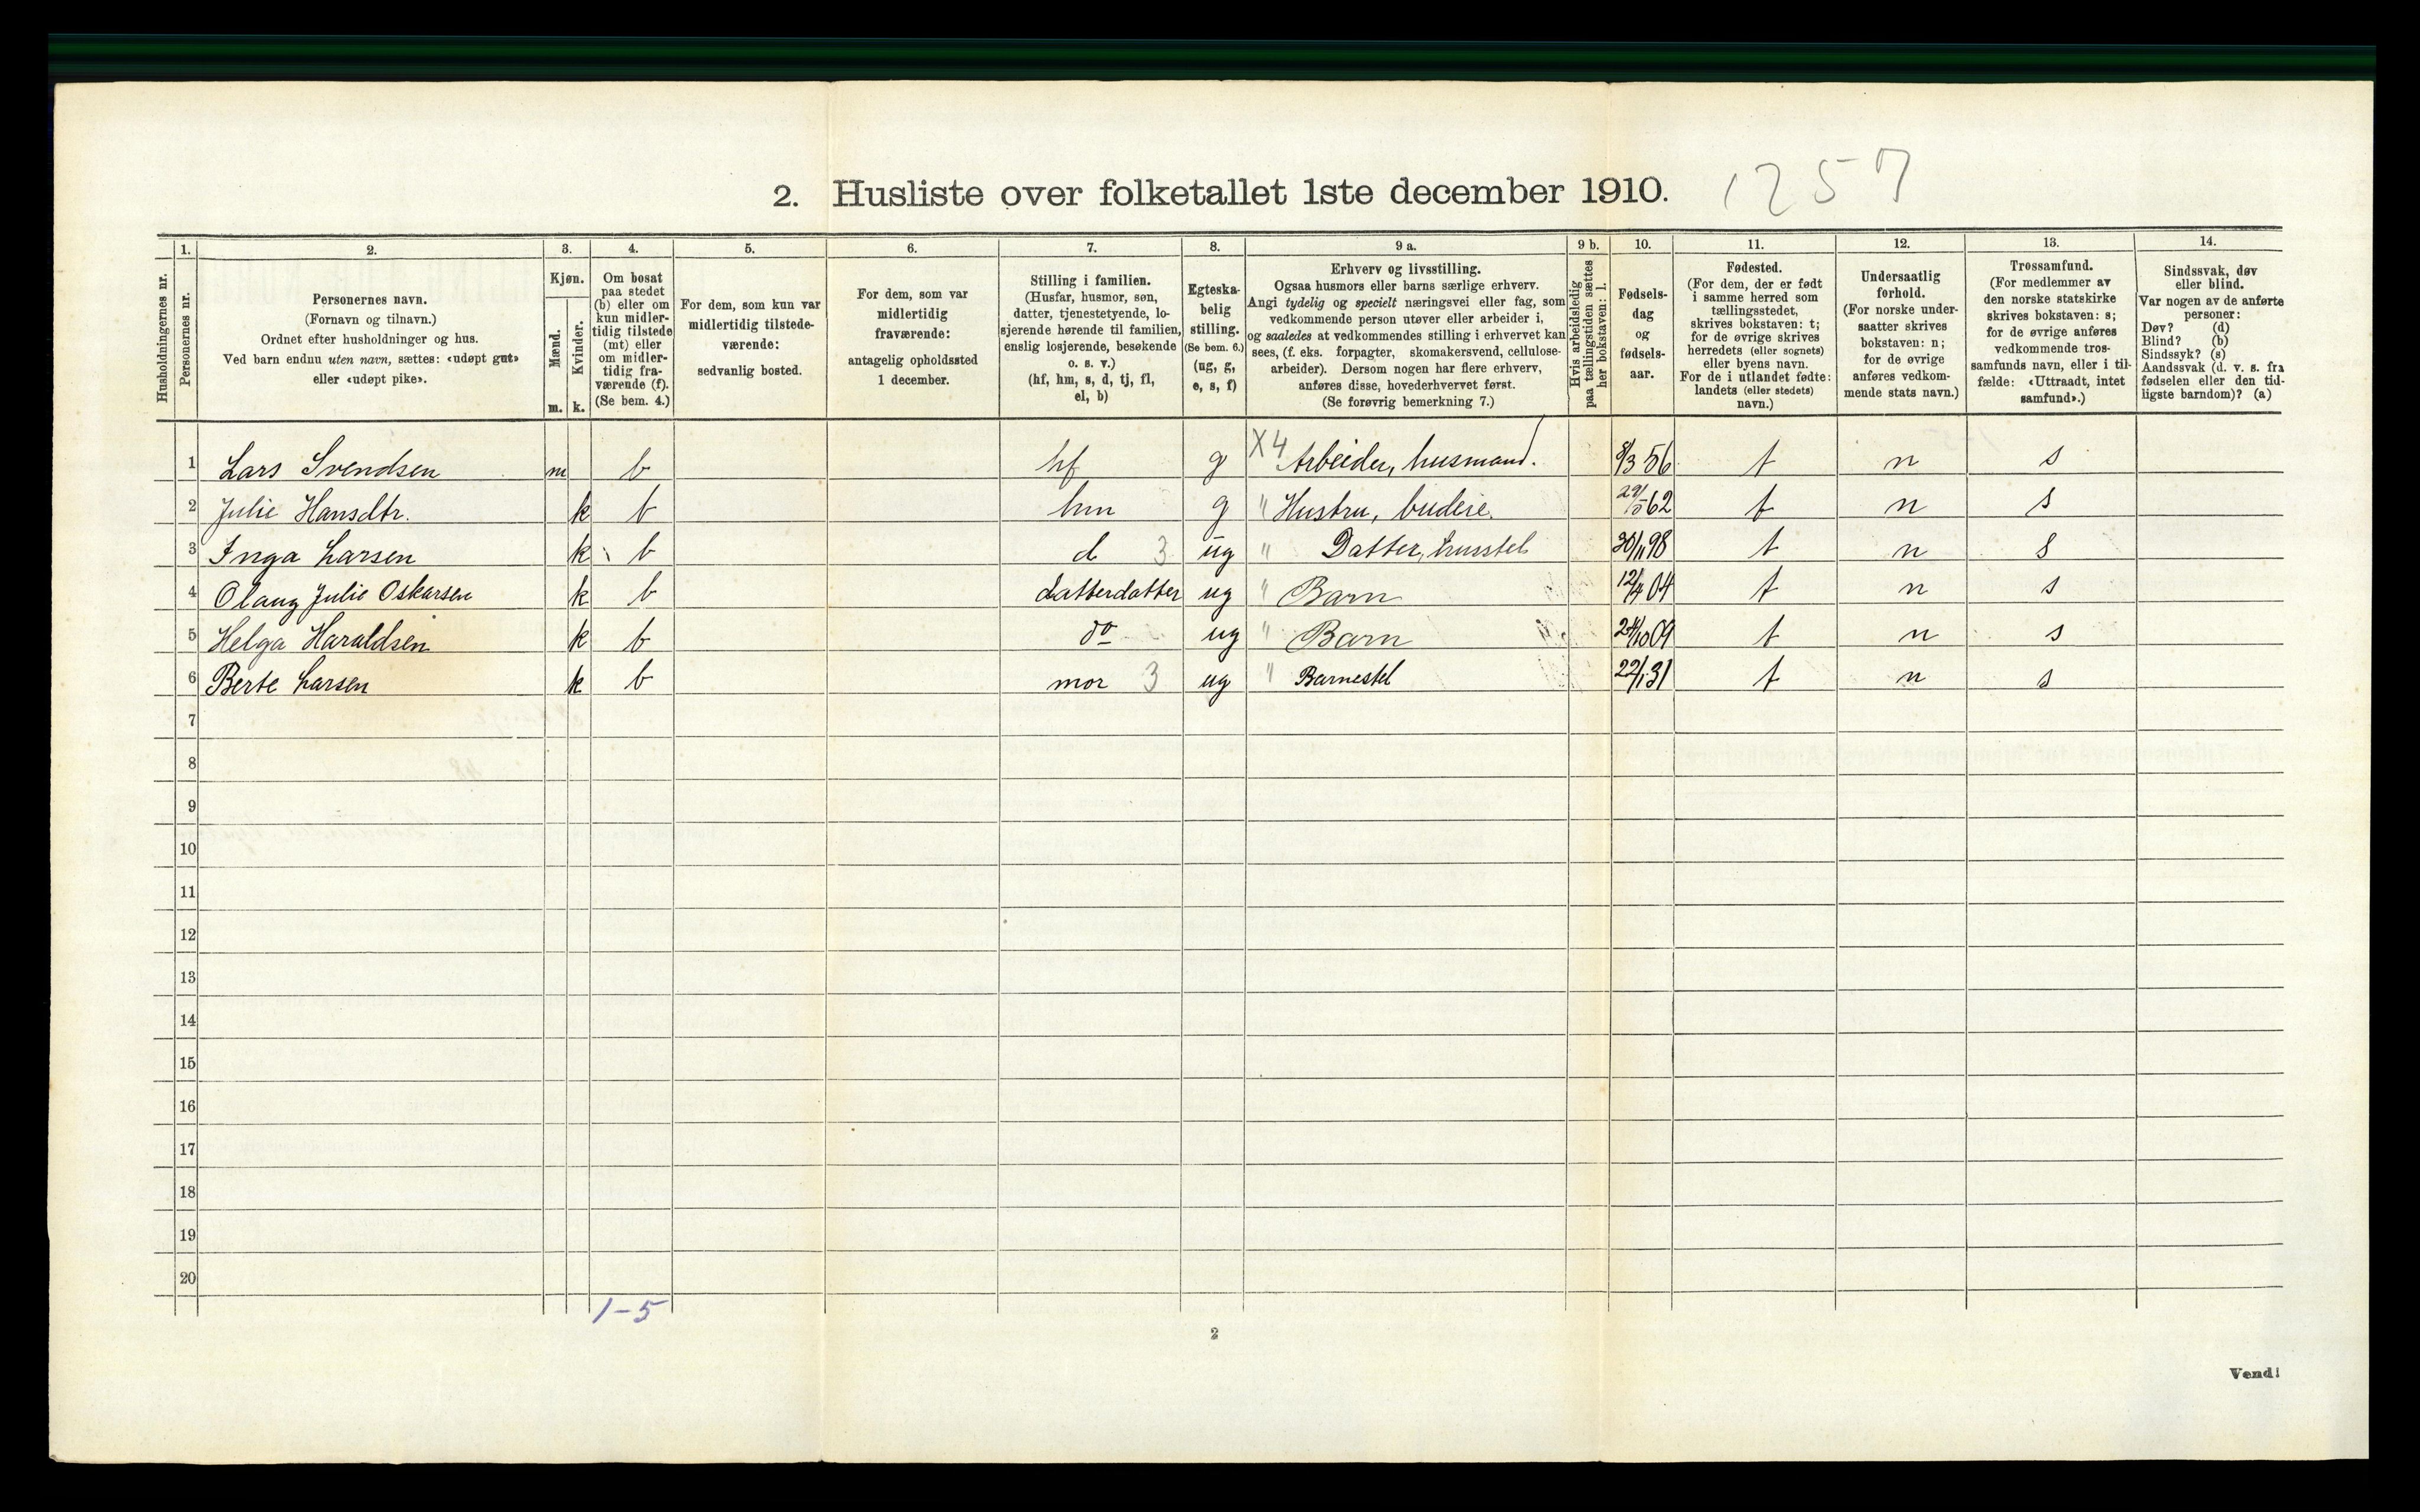 2. Husliste over folketallet 1ste december 1910. 1257
1. 2. 3. 4. 5. 6. 7. 8. 9 a. 9 b. 10. 11. 12. 13. 14.
Husholdningernes nr.
Personernes nr.
Personernes navn.
(Fornavn og tilnavn.)
Ordnet efter husholdninger og hus.
Ved barn endnu uten navn, sættes: «udøpt gut»
eller «udøpt pike».
Kjøn.
Mænd.
Kvinder.
m. k.
Om bosat
paa stedet
(b) eller om
kun midler-
tidig tilstede
(mt) eller
om midler-
tidig fra-
værende (f).
(Se bem. 4.)
For dem, som kun var
midlertidig tilstede-
værende:
sedvanlig bosted.
For dem, som var
midlertidig
fraværende:
antagelig opholdssted
1 december.
Stilling i familien.
(Husfar, husmor, søn,
datter, tjenestetyende, lo-
sjerende hørende til familien,
enslig losjerende, besøkende
o. s. v.)
(hf, hm, s, d, tj, fl,
el, b)
Egteska-
belig
stilling.
(Se bem. 6.)
(ug, g,
e, s, f)
Erhverv og livsstilling.
Ogsaa husmors eller barns særlige erhverv.
Angi tydelig og specielt næringsvei eller fag, som
vedkommende person utøver eller arbeider i,
og saaledes at vedkommendes stilling i erhvervet kan
sees, (f. eks. forpagter, skomakersvend, cellulose-
arbeider). Dersom nogen har flere erhverv,
anføres disse, hovederhvervet først.
(Se forøvrig bemerkning 7.)
Hvis arbeidsledig
paa tællingstiden sættes
her bokstaven: l.
Fødsels-
dag
og
fødsels-
aar.
Fødested.
(For dem, der er født
i samme herred som
tællingsstedet,
skrives bokstaven: t;
for de øvrige skrives
herredets (eller sognets)
eller byens navn.
For de i utlandet fødte:
landets (eller stedets)
navn.)
Undersaatlig
forhold.
(For norske under-
saatter skrives
bokstaven: n;
for de øvrige
anføres vedkom-
mende stats navn.)
Trossamfund.
(For medlemmer av
den norske statskirke
skrives bokstaven: s;
for de øvrige anføres
vedkommende tros-
samfunds navn, eller i til-
fælde: «Uttraadt, intet
samfund».)
Sindssvak, døv
eller blind.
Var nogen av de anførte
personer:
Døv? (d)
Blind? (b)
Sindssyk? (s)
Aandssvak (d. v. s. fra
fødselen eller den tid-
ligste barndom)? (a)
1 Lars Svendsen m b hf g X4 Arbeider, husmand. 8/3 56 t n s
2 Julie Hansdtr. k b hm g " Hustru, budeie. 29/5 62 t n s
3 Inga Larsen k b d 3 ug " Datter, husstel 30/11 98 t n s
4 Olaug Julie Oskarsen k b datterdatter ug " Barn 12/4 04 t n s
5 Helga Haraldsen k b do ug " Barn 24/10 09 t n s
6 Berte Larsen k b mor 3 ug " Barnestel 22/1 31 t n s
7
8
9
10
11
12
13
14
15
16
17
18
19
20
1-5
2
Vend!